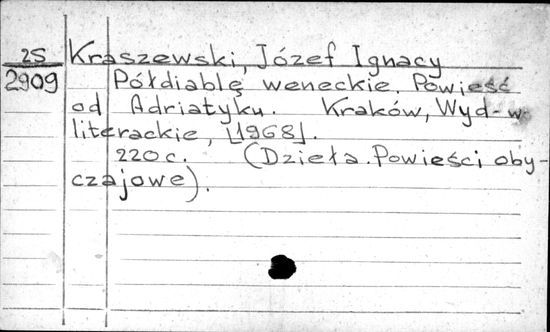 25
2909
Kraszewski, Józef Ignacy
Półdiablę weneckie. Powieść
od Adriatyku. Kraków, Wyd-w
literackie, [1968].
220 c. (Dzieła. Powieści oby-
czajowe).